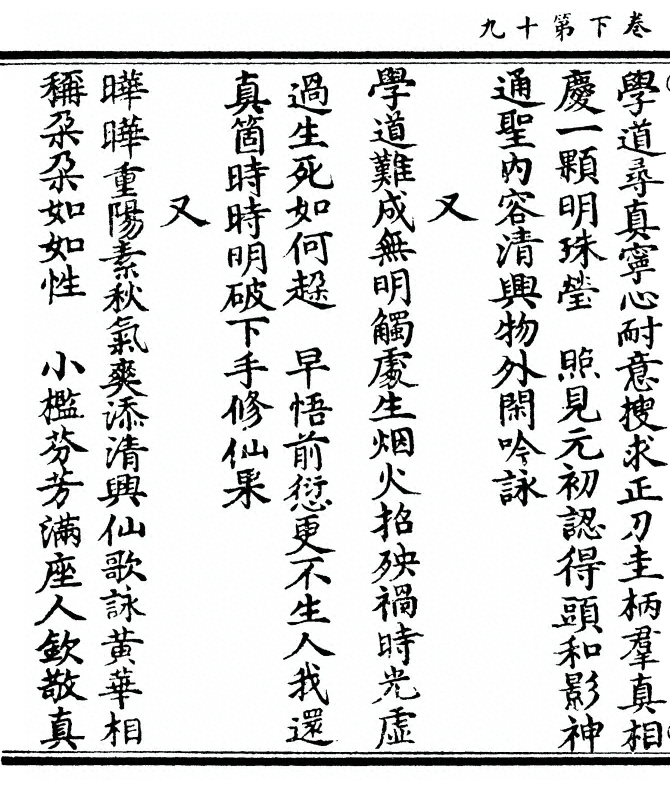 卷下第十九
學道尋真寧心耐意搜求正刀圭柄羣真相
慶一顆明珠瑩　照見元初認得頭和影神
通聖內容清興物外閑吟詠
又
學道難成無明觸處生烟火招殃禍時光虛
過生死如何趓　早悟前愆更不生人我還
真箇時時明破下手修仙果
又
曄曄重陽素秋氣爽添清興仙歌詠黃華相
稱朶朶如如性　小檻芬芳滿座人欽敬真